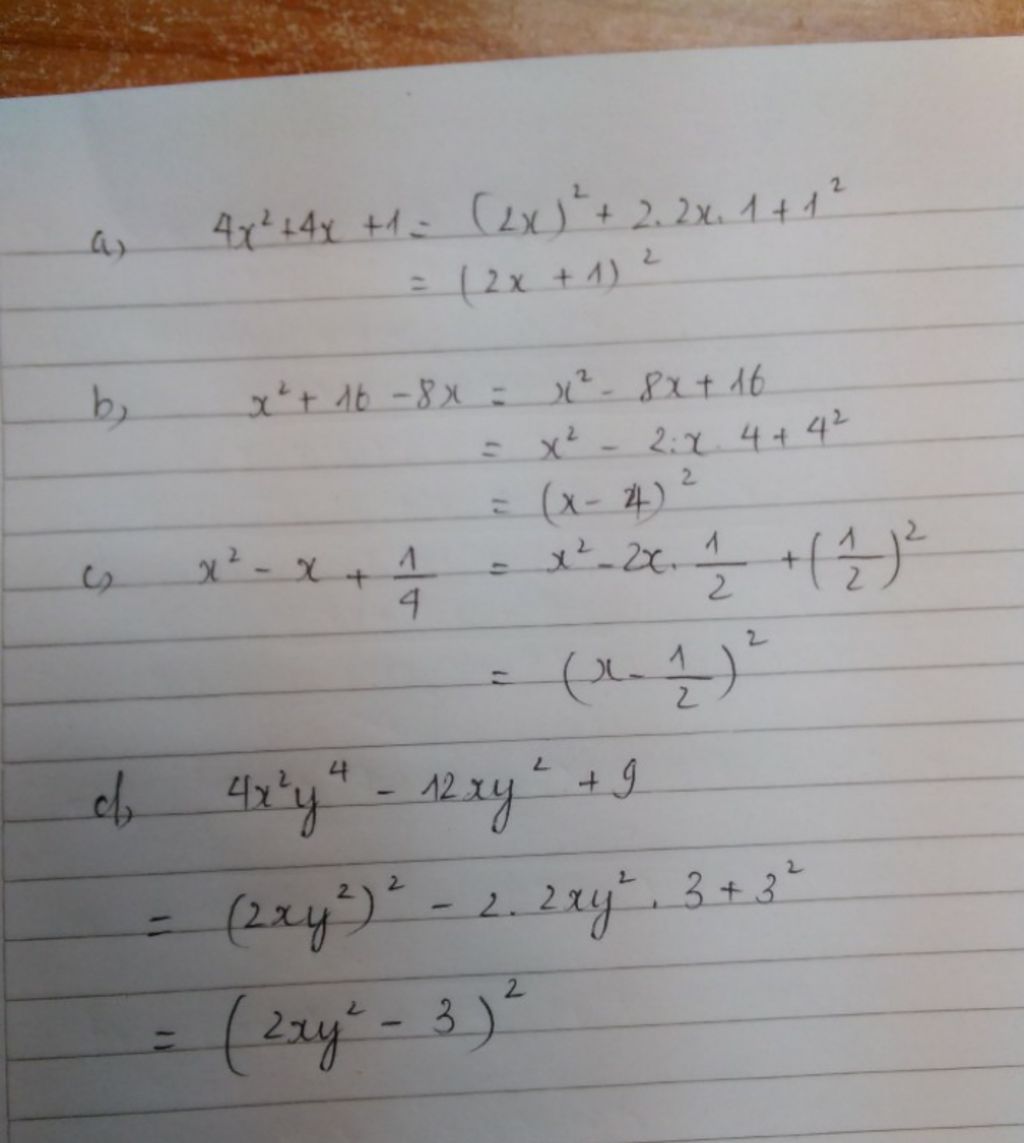 a) 4x²+4x +1 = (2x)² + 2.2x.1+1²
= (2x +1)²
b) x²+ 16 -8x = x² - 8x+16
= x² - 2.x.4+4²
= (x - 4)²
c) x² - x + 1/4 = x² - 2x. 1/2 + (1/2)²
= (x - 1/2)²
d) 4x²y⁴ - 12xy² + 9
= (2xy²)² - 2. 2xy². 3 + 3²
= (2xy² - 3)²